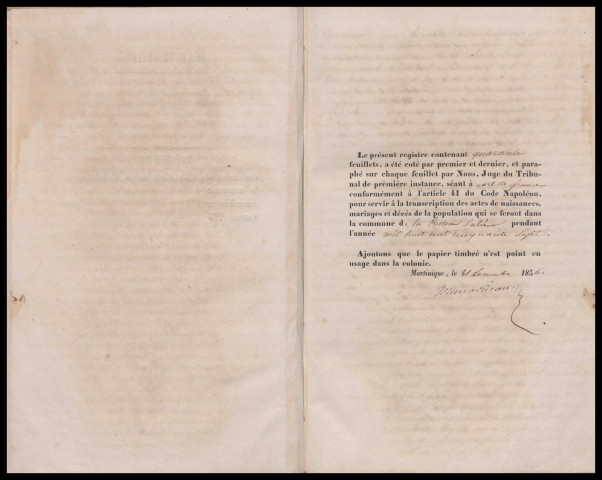 Le présent registre contenant quarante
feuillets, a été coté par premier et dernier, et para-
phé sur chaque feuillet par Nous, Juge du Tribu-
nal de première instance, séant à Fort de france
conformément à l'article 41 du Code Napoléon,
pour servir à la transcription des actes de naissances,
mariages et décès de la population qui se feront dans
la commune de la Rivière Salée pendant
l'année mil huit cent cinquante sept.
Ajoutons que le papier timbré n'est point en
usage dans la colonie.
Martinique, le 31 Décembre 1856.